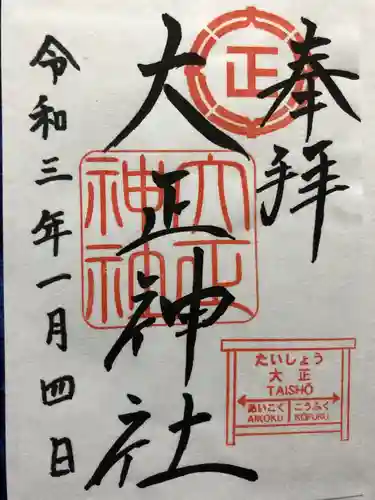 奉拝
正
大正神社
大正神社
令和三年一月四日
たいしょう
大正
TAISHŌ
あいこく こうふく
AIKOKU KOFUKU